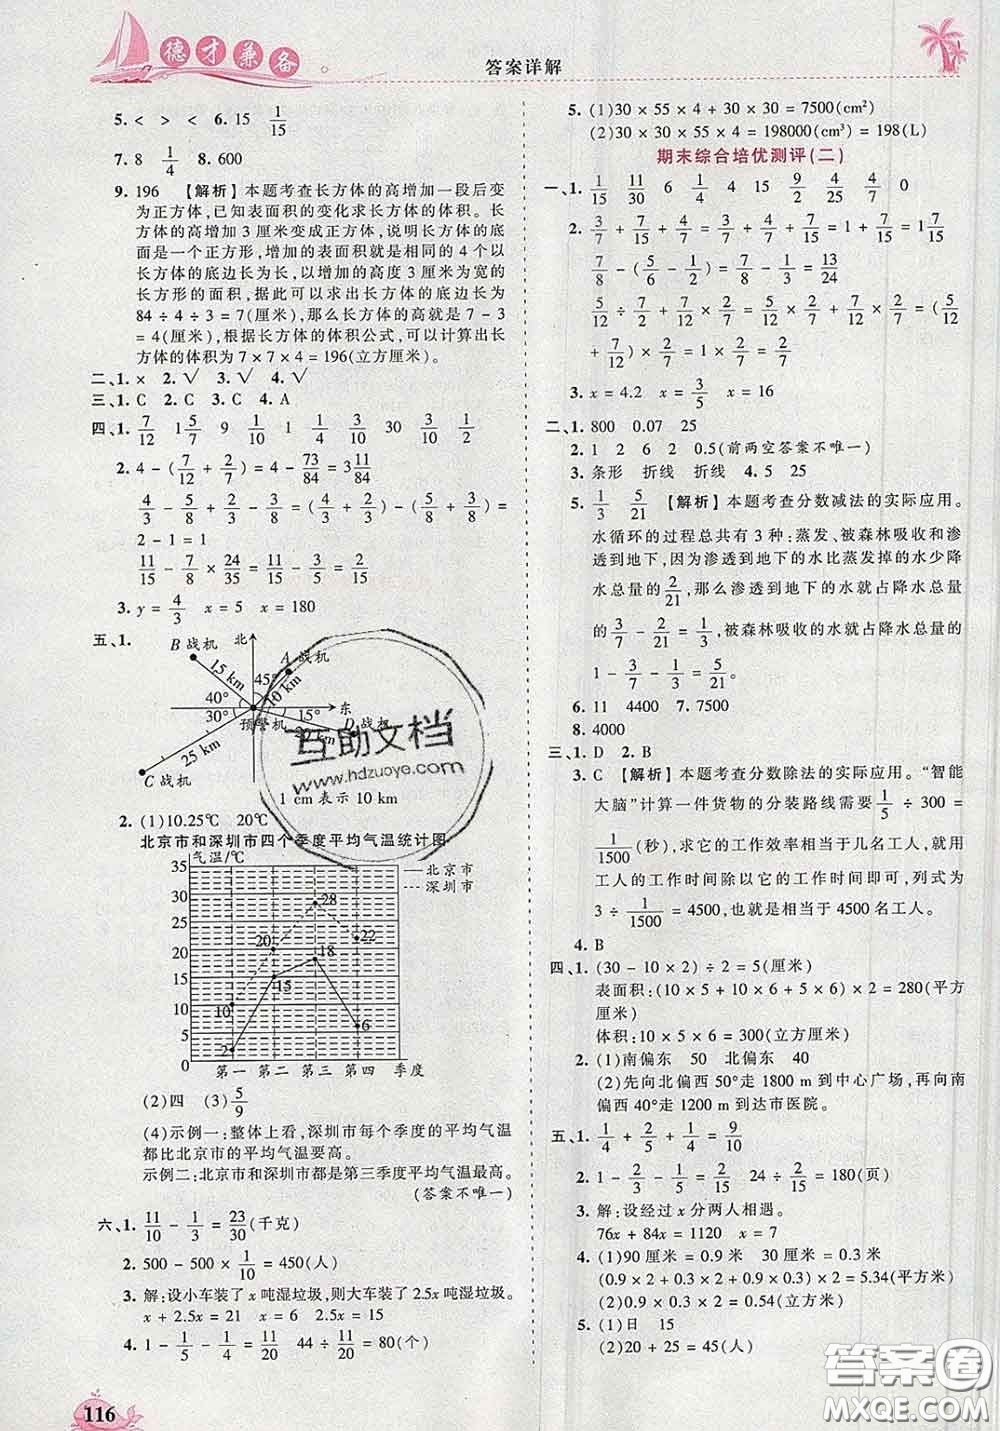 德才兼备
答案详解
5. < > < 6. 15 1/15
7. 8 1/4 8. 600
9. 196 【解析】本题考查长方体的高增加一段后变
为正方体,已知表面积的变化求长方体的体积。长
方体的高增加 3 厘米变成正方体,说明长方体的底
面是一个正方形,增加的表面积就是相同的 4 个以
长方体的底边长为长,以增加的高度 3 厘米为宽的
长方形的面积,据此可以求出长方体的底边长为
84 ÷ 4 ÷ 3 = 7(厘米),那么长方体的高就是 7 - 3
= 4(厘米),根据长方体的体积公式,可以计算出长
方体的体积为 7 × 7 × 4 = 196(立方厘米)。
二、1. × 2. √ 3. √ 4. √
三、1. C 2. C 3. C 4. A
四、1. 7/12 1 5/7 9 1/10 1 3/10 30 3/10 1/2
2. 4 - (7/12 + 2/7) = 4 - 73/84 = 3 11/84
4/3 - 5/8 + 2/3 - 3/8 = (4/3 + 2/3) - (5/8 + 3/8) =
2 - 1 = 1
11/15 - 7/8 × 24/35 = 11/15 - 3/5 = 2/15
3. y = 4/3 x = 5 x = 180
五、1.
北
B 战机
A 战机
15 km
45°
10 km
40°
30°
东
预警机
15°
D 战机
20 km
25 km
C 战机
1 cm 表示 10 km
2. (1)10.25℃ 20℃
北京市和深圳市四个季度平均气温统计图
气温/℃
北京市
深圳市
35
30
25
20
15
10
5
0
28
20
22
18
15
10
6
2
第一 第二 第三 第四 季度
(2)四 (3) 5/9
(4)示例一:整体上看,深圳市每个季度的平均气温
都比北京市的平均气温要高。
示例二:北京市和深圳市都是第三季度平均气温最高。
(答案不唯一)
六、1. 11/10 - 1/3 = 23/30(千克)
2. 500 - 500 × 1/10 = 450(人)
3. 解:设小车装了 x 吨湿垃圾,则大车装了 2.5x 吨湿垃圾。
x + 2.5x = 21 x = 6 2.5x = 15
4. 1 - 1/5 - 1/4 = 11/20 44 ÷ 11/20 = 80(个)
116
5. (1)30 × 55 × 4 + 30 × 30 = 7500(cm²)
(2)30 × 55 × 4 × 30 = 198000(cm³) = 198(L)
期末综合培优测评(二)
一、1. 1/15 11/30 6 1/4 4 15 9/2 4/25 4/7 0
2. 3/7 + 7/15 + 4/7 = 3/7 + 4/7 + 7/15 = 1 + 7/15 = 1 7/15
7/8 - (5/8 - 7/24) = 7/8 - 1/3 = 13/24
5/12 ÷ 7/2 + 7/12 × 2/7 = 5/12 × 2/7 + 7/12 × 2/7 = (5/12
+ 7/12) × 2/7 = 1 × 2/7 = 2/7
3. x = 4.2 x = 3/5 x = 16
二、1. 800 0.07 25
2. 1 2 6 2 0.5(前两空答案不唯一)
3. 条形 折线 折线 4. 5 25
5. 1/3 5/21 【解析】本题考查分数减法的实际应用。
水循环的过程总共有 3 种:蒸发、被森林吸收和渗
透到地下,因为渗透到地下的水比蒸发掉的水少降
水总量的 2/21,那么渗透到地下的水就占降水总量
的 3/7 - 2/21 = 1/3,被森林吸收的水就占降水总量的
1 - 3/7 - 1/3 = 5/21。
6. 11 4400 7. 7500
8. 4000
三、1. D 2. B
3. C 【解析】本题考查分数除法的实际应用。“智能
大脑”计算一件货物的分装路线需要 1/5 ÷ 300 =
1/1500(秒),求它的工作效率相当于几名工人,就用
工人的工作时间除以它的工作时间即可,列式为
3 ÷ 1/1500 = 4500,也就是相当于 4500 名工人。
4. B
四、1. (30 - 10 × 2) ÷ 2 = 5(厘米)
表面积:(10 × 5 + 10 × 6 + 5 × 6) × 2 = 280(平方
厘米)
体积:10 × 5 × 6 = 300(立方厘米)
2. (1)南偏东 50 北偏东 40
(2)先向北偏西 50°走 1800 m 到中心广场,再向南
偏西 40°走 1200 m 到达市医院。
五、1. 1/4 + 2/5 + 1/4 = 9/10
2. 1 - 2/3 - 1/5 = 2/15 24 ÷ 2/15 = 180(页)
3. 解:设经过 x 分两人相遇。
76x + 84x = 1120 x = 7
4. (1)90 厘米 = 0.9 米 30 厘米 = 0.3 米
(0.9 × 2 + 0.9 × 0.3 + 2 × 0.3) × 2 = 5.34(平方米)
(2)0.9 × 0.3 × 2 = 0.54(立方米)
5. (1)日 15
(2)20 + 25 = 45(人)
互助文档
www.hdzuoye.com
答案圈
MXQE.COM